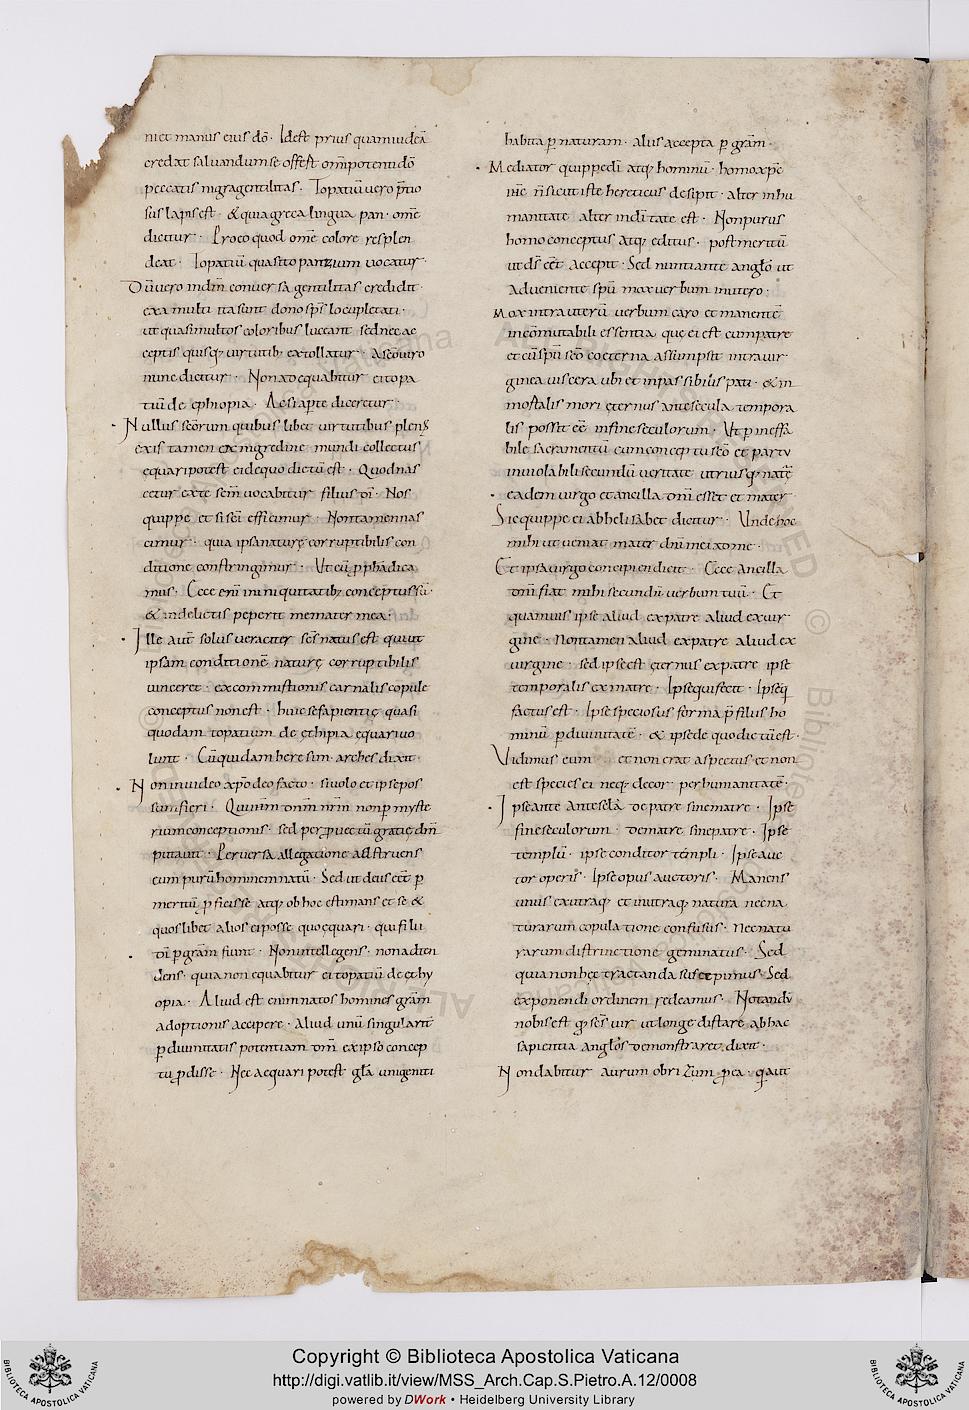 niet manus eius dō. Idest prius quam iudeā
credat saluandum se offest omīpotenti dō
peccatis nigra gentilitas. Topatiū uero p̄tio
sus lapis est. & quia greca lingua pan. omē
dicitur. Pro eo quod omē colore resplen
deat. Topatiū quasi topantzium uocatur.
Dū uero in dm̄ conuersa gentilitas credidit.
ex ea multi ita sunt dono sps̄ locupletati.
ut quasi multos coloribus luceant sed ne ac
ceptis quisq; uirtutib; extollatur. A scō uiro
nunc dicitur. Non adequabitur ei topa
tiū de ęthiopia. Ac si aperte diceretur.
Nullus scōrum quibus libet uirtutibus plenus
ex istamen nigredine mundi collectus
equari potest ei de quo dictū est. Quod nas
cetur ex te scm̄ uocabitur filius dī. Nos
quippe et si sci efficimur. Non tamen nas
cimur. quia ipsa naturę corruptibilis con
ditione constringimur. Ut cū p̱pheta dica
mus. Ecce enī in iniquitatib; conceptus sū.
& in delictis peperit me mater mea.
Ille aut̄ solus ueraciter scs̄ natus est qui ut
ipsam conditionē naturę corruptibilis
uinceret. ex commistionis carnalis copule
conceptus non est. huic se sapientię quasi
quodam topatium de ęthipia equari uo
luit. Cū quidam heresim arches dixit.
Non inuideo xp̄o deo facto. si uolo et ipse pos
sum fieri. Qui nrm̄ dnm̄ nrm̄ non p̱ myste
rium conceptionis. sed per puectū gratię dm̄
putauit. Peruersa allegatione adstruens
eum purū hominem natū. Sed ut deus eēt p̱
meritū p̱ficisse atq; ob hoc estimans et se &
quoslibet alios ei posse quo ęquari. qui filii
dī p̱ grām̄ fiunt. Non intellegens. non adten
dens. quia non equabitur ei topatiū de ęthy
opia. Aliud est enim natos homines grām̄
adoptionis accipere. Aliud unū singularit̄
p̱ diuinitatis potentiam dm̄ ex ipso concep
tu p̱disse. Nec aequari potest glā unigeniti
habita p̱ naturam. alius accepta p̱ grām̄.
Mediator quippe di atq; hominū. homo xp̄c
ihc̄ n̄ sicut iste hereticus desipit. alter in hu
manitate alter in diuitate est. Non purus
homo conceptus atq; editus. post meritū
ut ds̄ eēt accepit. Sed nuntiante anglō ut
adueniente spū mox uerbum in utero.
Mox intra uterū uerbum caro et manente
incōmutabili essentia que ei est cum patre
et cū spū scō coeterna assumpsit intra uir
ginea uiscera ubi et inpassibilis pati. & in
mortalis mori ęternus ante secula tempora
lis possit eē in fine seculorum. Ut p̱ ineffa
bile sacramentū cum conceptu scō et partu
inuiolabili secundū ueritate utriusq; natę
eadem uirgo et ancilla dnī esset et mater
Sic quippe ei ab helisabet dicitur. Unde hoc
mihi ut ueniat mater dnī mei ad me.
Et ipsa uirgo concipien dicit. Ecce ancilla
dnī fiat mihi secundū uerbum tuū. Et
quamuis ipse aliud ex patre aliud ex uir
gine. non tamen aliud ex patre aliud ex
uirgine. sed ipse est ęternus ex patre ipse
temporalis ex matre. Ipse qui fecit. Ipse q̄
factus est. Ipse speciosus forma p̄ filius ho
minū p̱ diuinitatē. & ipse de quo dictū est.
Vidimus eum et non erat aspectus et non
est species ei neq; decor per humanitatē.
Ipse ante antesēla de patre sine matre. Ipse
fine seculorum. de matre sine patre. Ipse
templū. ipse conditor templi. Ipse auc
tor operis. Ipse opus auctoris. Manens
unus ex utraq; et in utraq; natura nec na
turarum copulatione confusus. nec natu
rarum distinctione geminatus. Sed
quia non hęc tractanda suscepimus. Sed
exponendi ordinem redeamus. Notandū
nobis est q̱ scs̄ uir ut longe distare ab hac
sapientia anglōs demonstraret dixit.
Non dabitur aurum obrizum p̱ ea. q̱ aut
Copyright © Biblioteca Apostolica Vaticana
http://digi.vatlib.it/view/MSS_Arch.Cap.S.Pietro.A.12/0008
powered by DWork • Heidelberg University Library